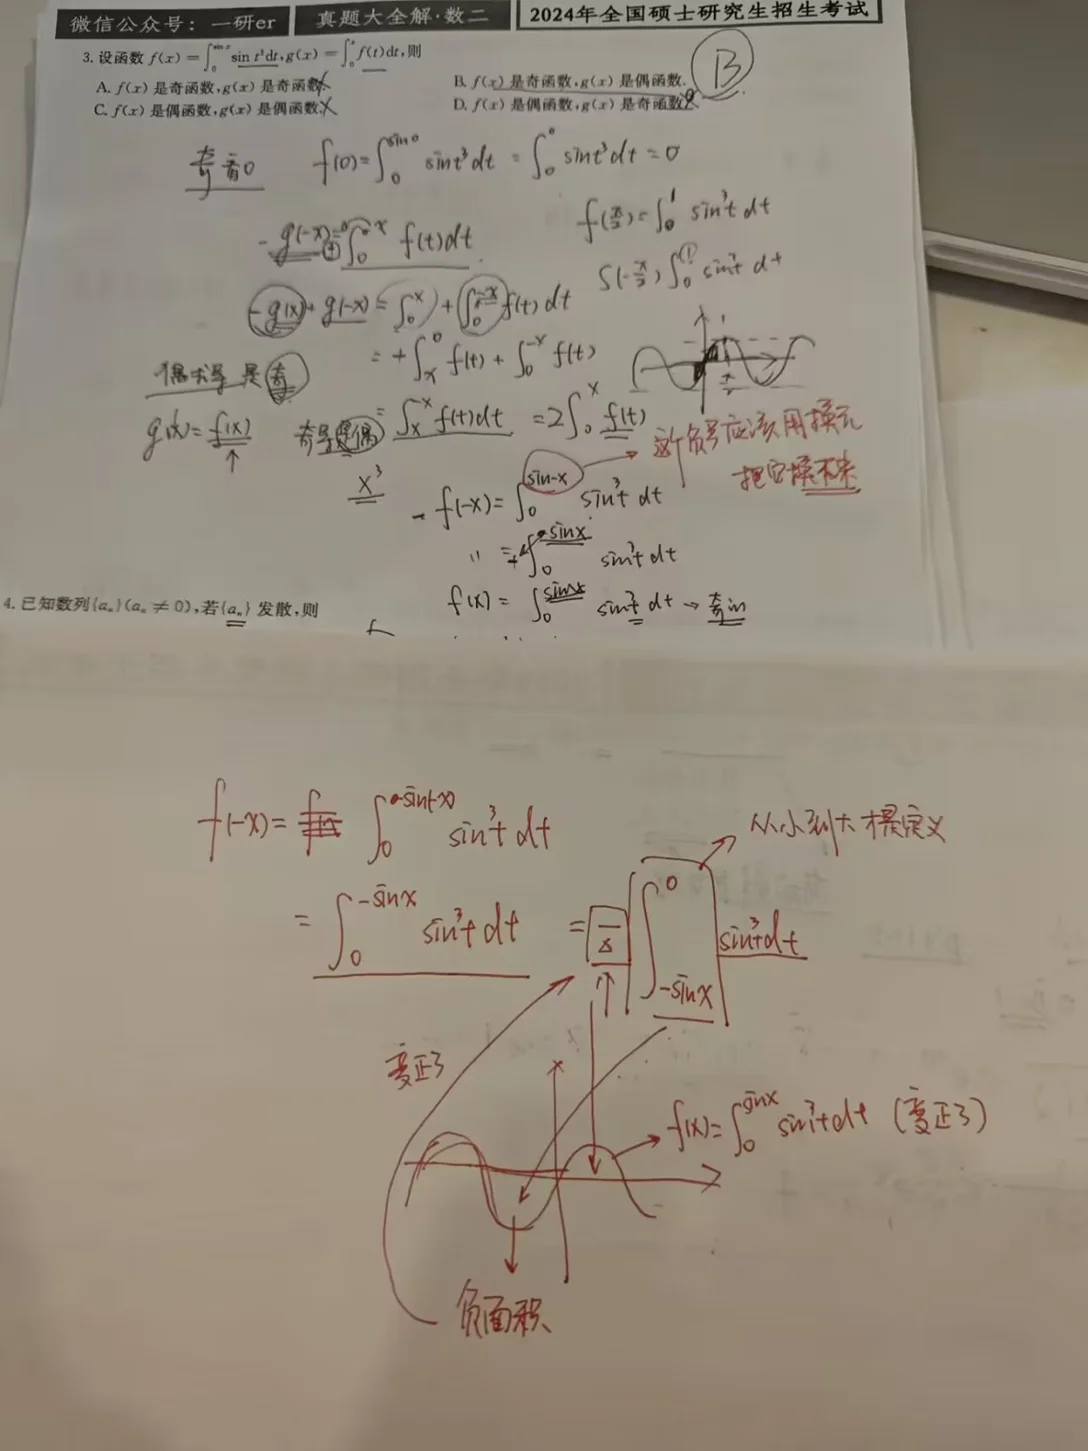 微信公众号：一研er 真题大全解·数二 2024年全国硕士研究生招生考试
3. 设函数 f(x) = ∫₀^{sin x} sin t³dt, g(x) = ∫₀^x f(t)dt, 则
A. f(x) 是奇函数, g(x) 是奇函数. B. f(x) 是奇函数, g(x) 是偶函数.
C. f(x) 是偶函数, g(x) 是偶函数. D. f(x) 是偶函数, g(x) 是奇函数.
B
f(0) = ∫₀^{sin0} sint³dt = ∫₀^0 sint³dt = 0
f(π/2) = ∫₀^1 sin³t dt
-g(-x) = ∫₀^{-x} f(t)dt
f(-π/2) ∫₀^① sin³t dt
-g(x) + g(-x) = ∫₀^x + ∫₀^{-x} f(t)dt
= + ∫_x^0 f(t) + ∫₀^{-x} f(t)
偶求导是奇
g'(x) = f(x) 奇导是偶 = ∫_x^x f(t)dt = 2∫₀^x f(t)
这个负号应该用换元
把它换下来
x³
- f(-x) = ∫₀^{sin-x} sin³t dt
'' = + ∫₀^{-sinx} sin³t dt
f(x) = ∫₀^{sinx} sin³t dt → 奇
4. 已知数列{aₙ}(aₙ ≠ 0), 若{aₙ} 发散, 则
f(-x) = ∫₀^{sin(-x)} sin³t dt
从小到大才是定义
= ∫₀^{-sinx} sin³t dt = - ∫_{-sinx}^0 sin³t dt
变正了
f(x) = ∫₀^{sinx} sin³t dt (变正了)
负面积